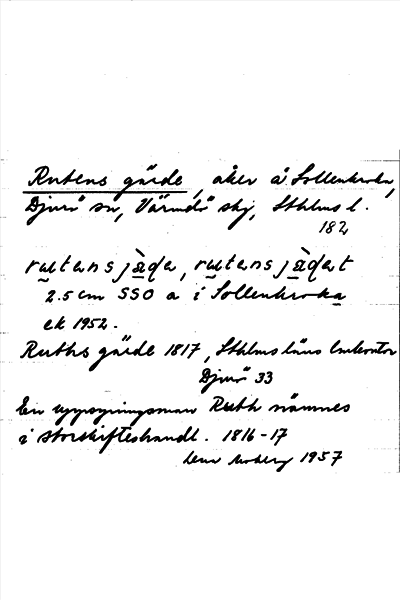 Rutens gärde, åker å Sollenkroka,
Djurö sn, Värmdö skg, Sthlms l.
182
rutens jäda, rutens jädet
2.5 cm SSO a i Sollenkroka
ek 1952.
Ruths gärde 1817, Sthlms läns lmkontor
Djurö 33
En uppsyningsman Ruth nämnes
i storskifteshandl. 1816-17
1957